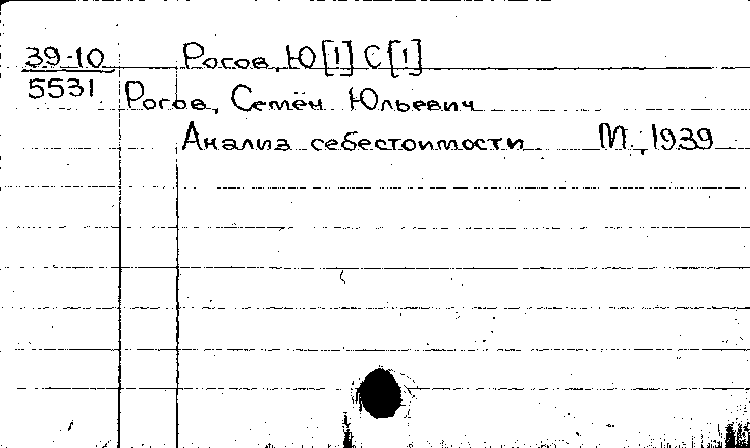 39-10 Рогов, Ю[!] С[!]
5531
Рогов, Семён Юльевич
Анализ себестоимости М., 1939